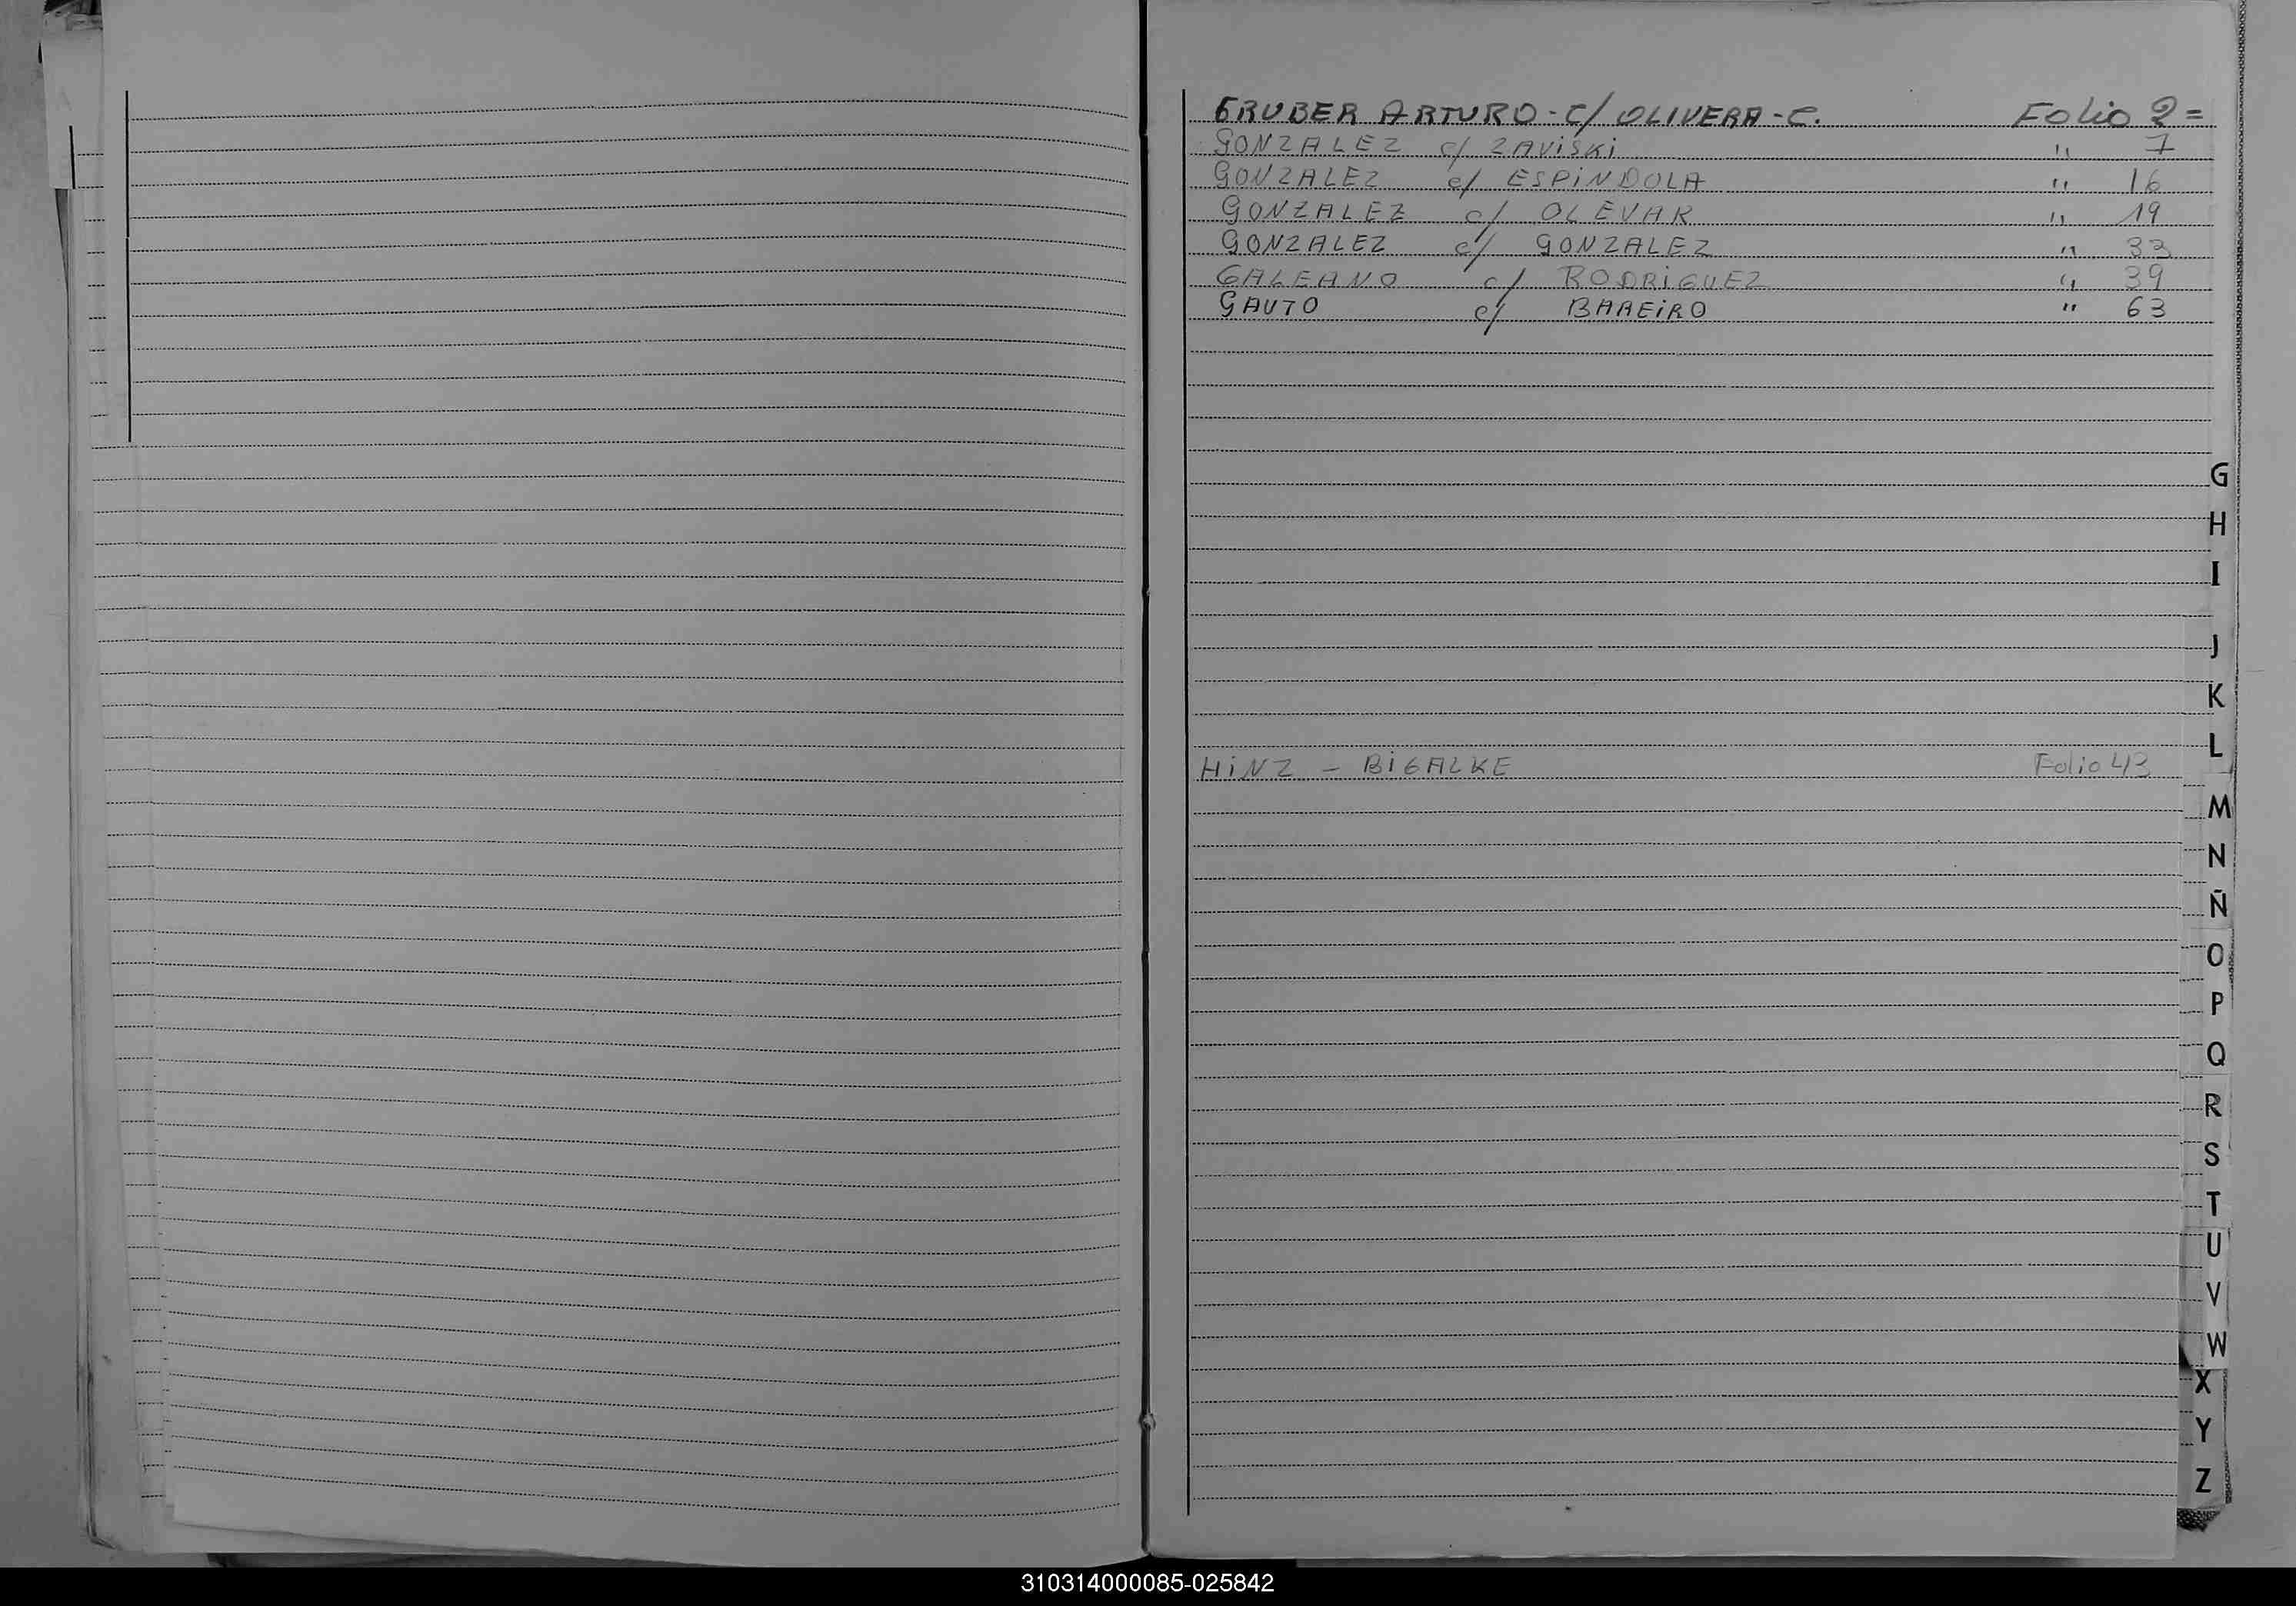 GRUBER ARTURO - C/ OLIVERA - C. Folio 2 =
GONZALEZ c/ ZAViSKi " 7
GONZALEZ c/ ESPiNDOLA " 16
GONZALEZ c/ OLEVAR " 19
GONZALEZ c/ GONZALEZ " 33
GALEANO c/ RODRiGUEZ " 39
GAUTO c/ BAREiRO " 63
G
H
I
J
K
L
HiNZ - BiGALKE Folio 43
M
N
Ñ
O
P
Q
R
S
T
U
V
W
X
Y
Z
310314000085-025842